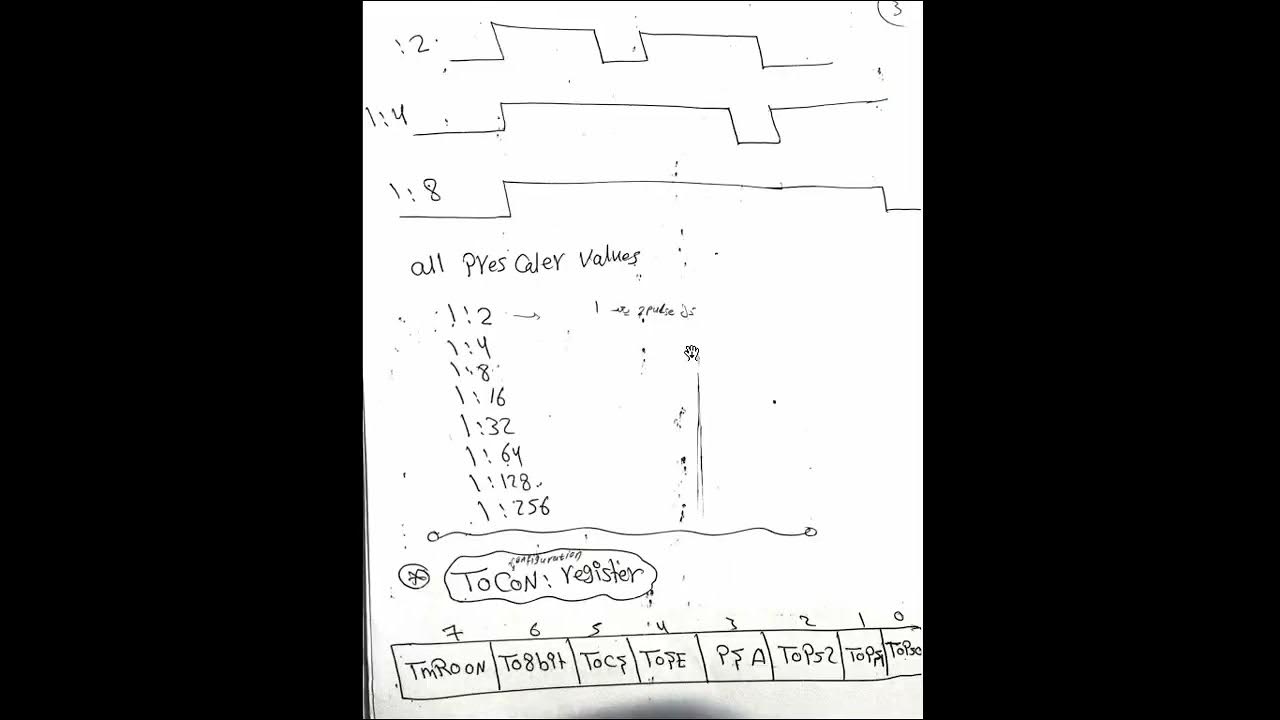 3
:2
1:4
1:8
all Prescaler values
1:2 → 1
1:4
1:8
1:16
1:32
1:64
1:128
1:256
configuration
ToCoN: register
7 6 5 4 3 2 1 0
TmRoON To8bit ToCS ToSE PSA ToPS2 ToPS1 ToPSo